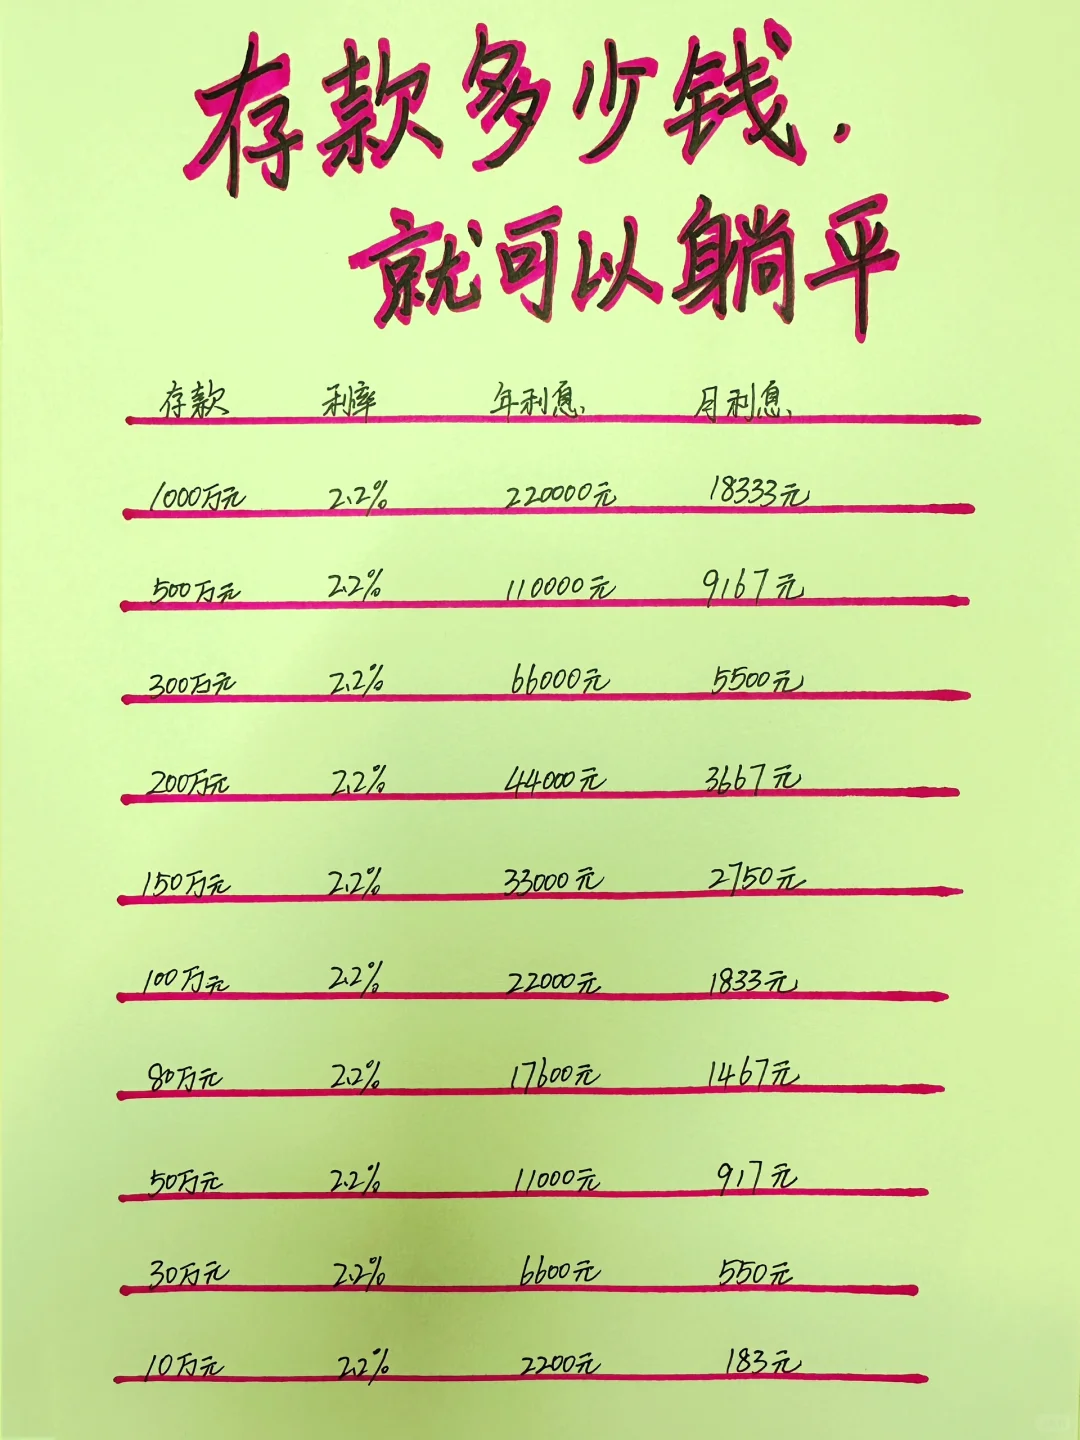 存款多少钱.
就可以躺平
存款 利率 年利息 月利息
1000万元 2.2% 220000元 18333元
500万元 2.2% 110000元 9167元
300万元 2.2% 66000元 5500元
200万元 2.2% 44000元 3667元
150万元 2.2% 33000元 2750元
100万元 2.2% 22000元 1833元
80万元 2.2% 17600元 1467元
50万元 2.2% 11000元 917元
30万元 2.2% 6600元 550元
10万元 2.2% 2200元 183元